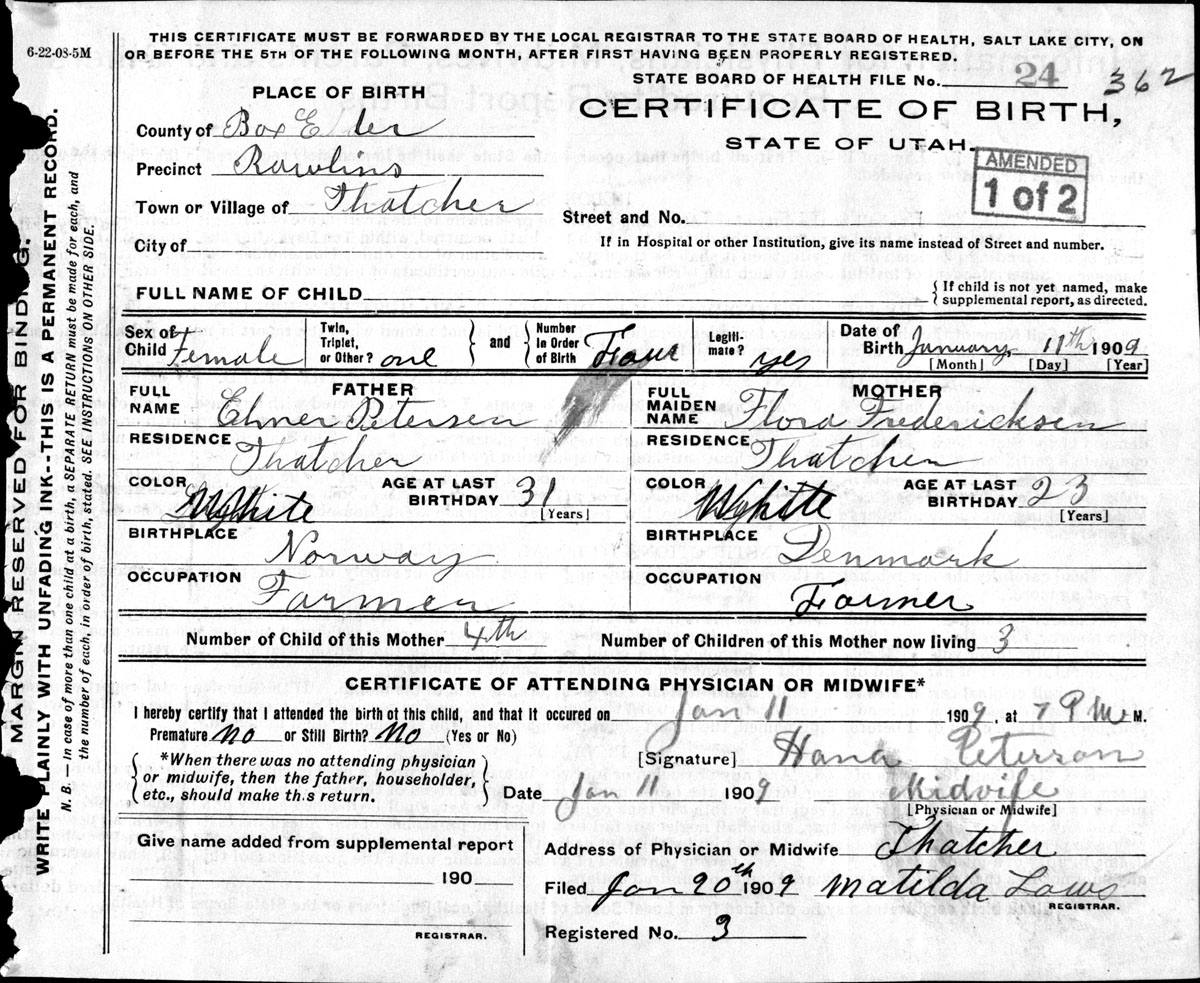 6-22-08-5M
THIS CERTIFICATE MUST BE FORWARDED BY THE LOCAL REGISTRAR TO THE STATE BOARD OF HEALTH, SALT LAKE CITY, ON
OR BEFORE THE 5TH OF THE FOLLOWING MONTH, AFTER FIRST HAVING BEEN PROPERLY REGISTERED.
STATE BOARD OF HEALTH FILE No. 24 362
PLACE OF BIRTH
CERTIFICATE OF BIRTH,
STATE OF UTAH.
AMENDED
1 of 2
County of Box Elder
Precinct Rawlins
Town or Village of Thatcher
Street and No.
City of
If in Hospital or other Institution, give its name instead of Street and number.
FULL NAME OF CHILD
{ If child is not yet named, make
supplemental report, as directed.
Sex of Child Female
Twin, Triplet, or Other? one } and { Number In Order of Birth Four
Legiti-mate? yes
Date of Birth January 11th 1909
[Month] [Day] [Year]
FATHER
FULL NAME Elmer Petersen
RESIDENCE Thatcher
COLOR White AGE AT LAST BIRTHDAY 31
[Years]
BIRTHPLACE Norway
OCCUPATION Farmer
MOTHER
FULL MAIDEN NAME Flora Fredericksen
RESIDENCE Thatcher
COLOR White AGE AT LAST BIRTHDAY 23
[Years]
BIRTHPLACE Denmark
OCCUPATION Farmer
Number of Child of this Mother 4th
Number of Children of this Mother now living 3
CERTIFICATE OF ATTENDING PHYSICIAN OR MIDWIFE*
I hereby certify that I attended the birth of this child, and that it occured on Jan 11 1909, at M.
Premature No or Still Birth? No (Yes or No)
{ *When there was no attending physician
or midwife, then the father, householder,
etc., should make this return. }
[Signature] Hana Peterson
Date Jan 11 1909 Midwife
[Physician or Midwife]
Give name added from supplemental report
190
REGISTRAR.
Address of Physician or Midwife Thatcher
Filed Jan 20th 1909 Matilda Laws
REGISTRAR.
Registered No. 3
MARGIN RESERVED FOR BINDING.
WRITE PLAINLY WITH UNFADING INK--THIS IS A PERMANENT RECORD.
N. B. — In case of more than one child at a birth, a SEPARATE RETURN must be made for each, and
the number of each, in order of birth, stated. SEE INSTRUCTIONS ON OTHER SIDE.